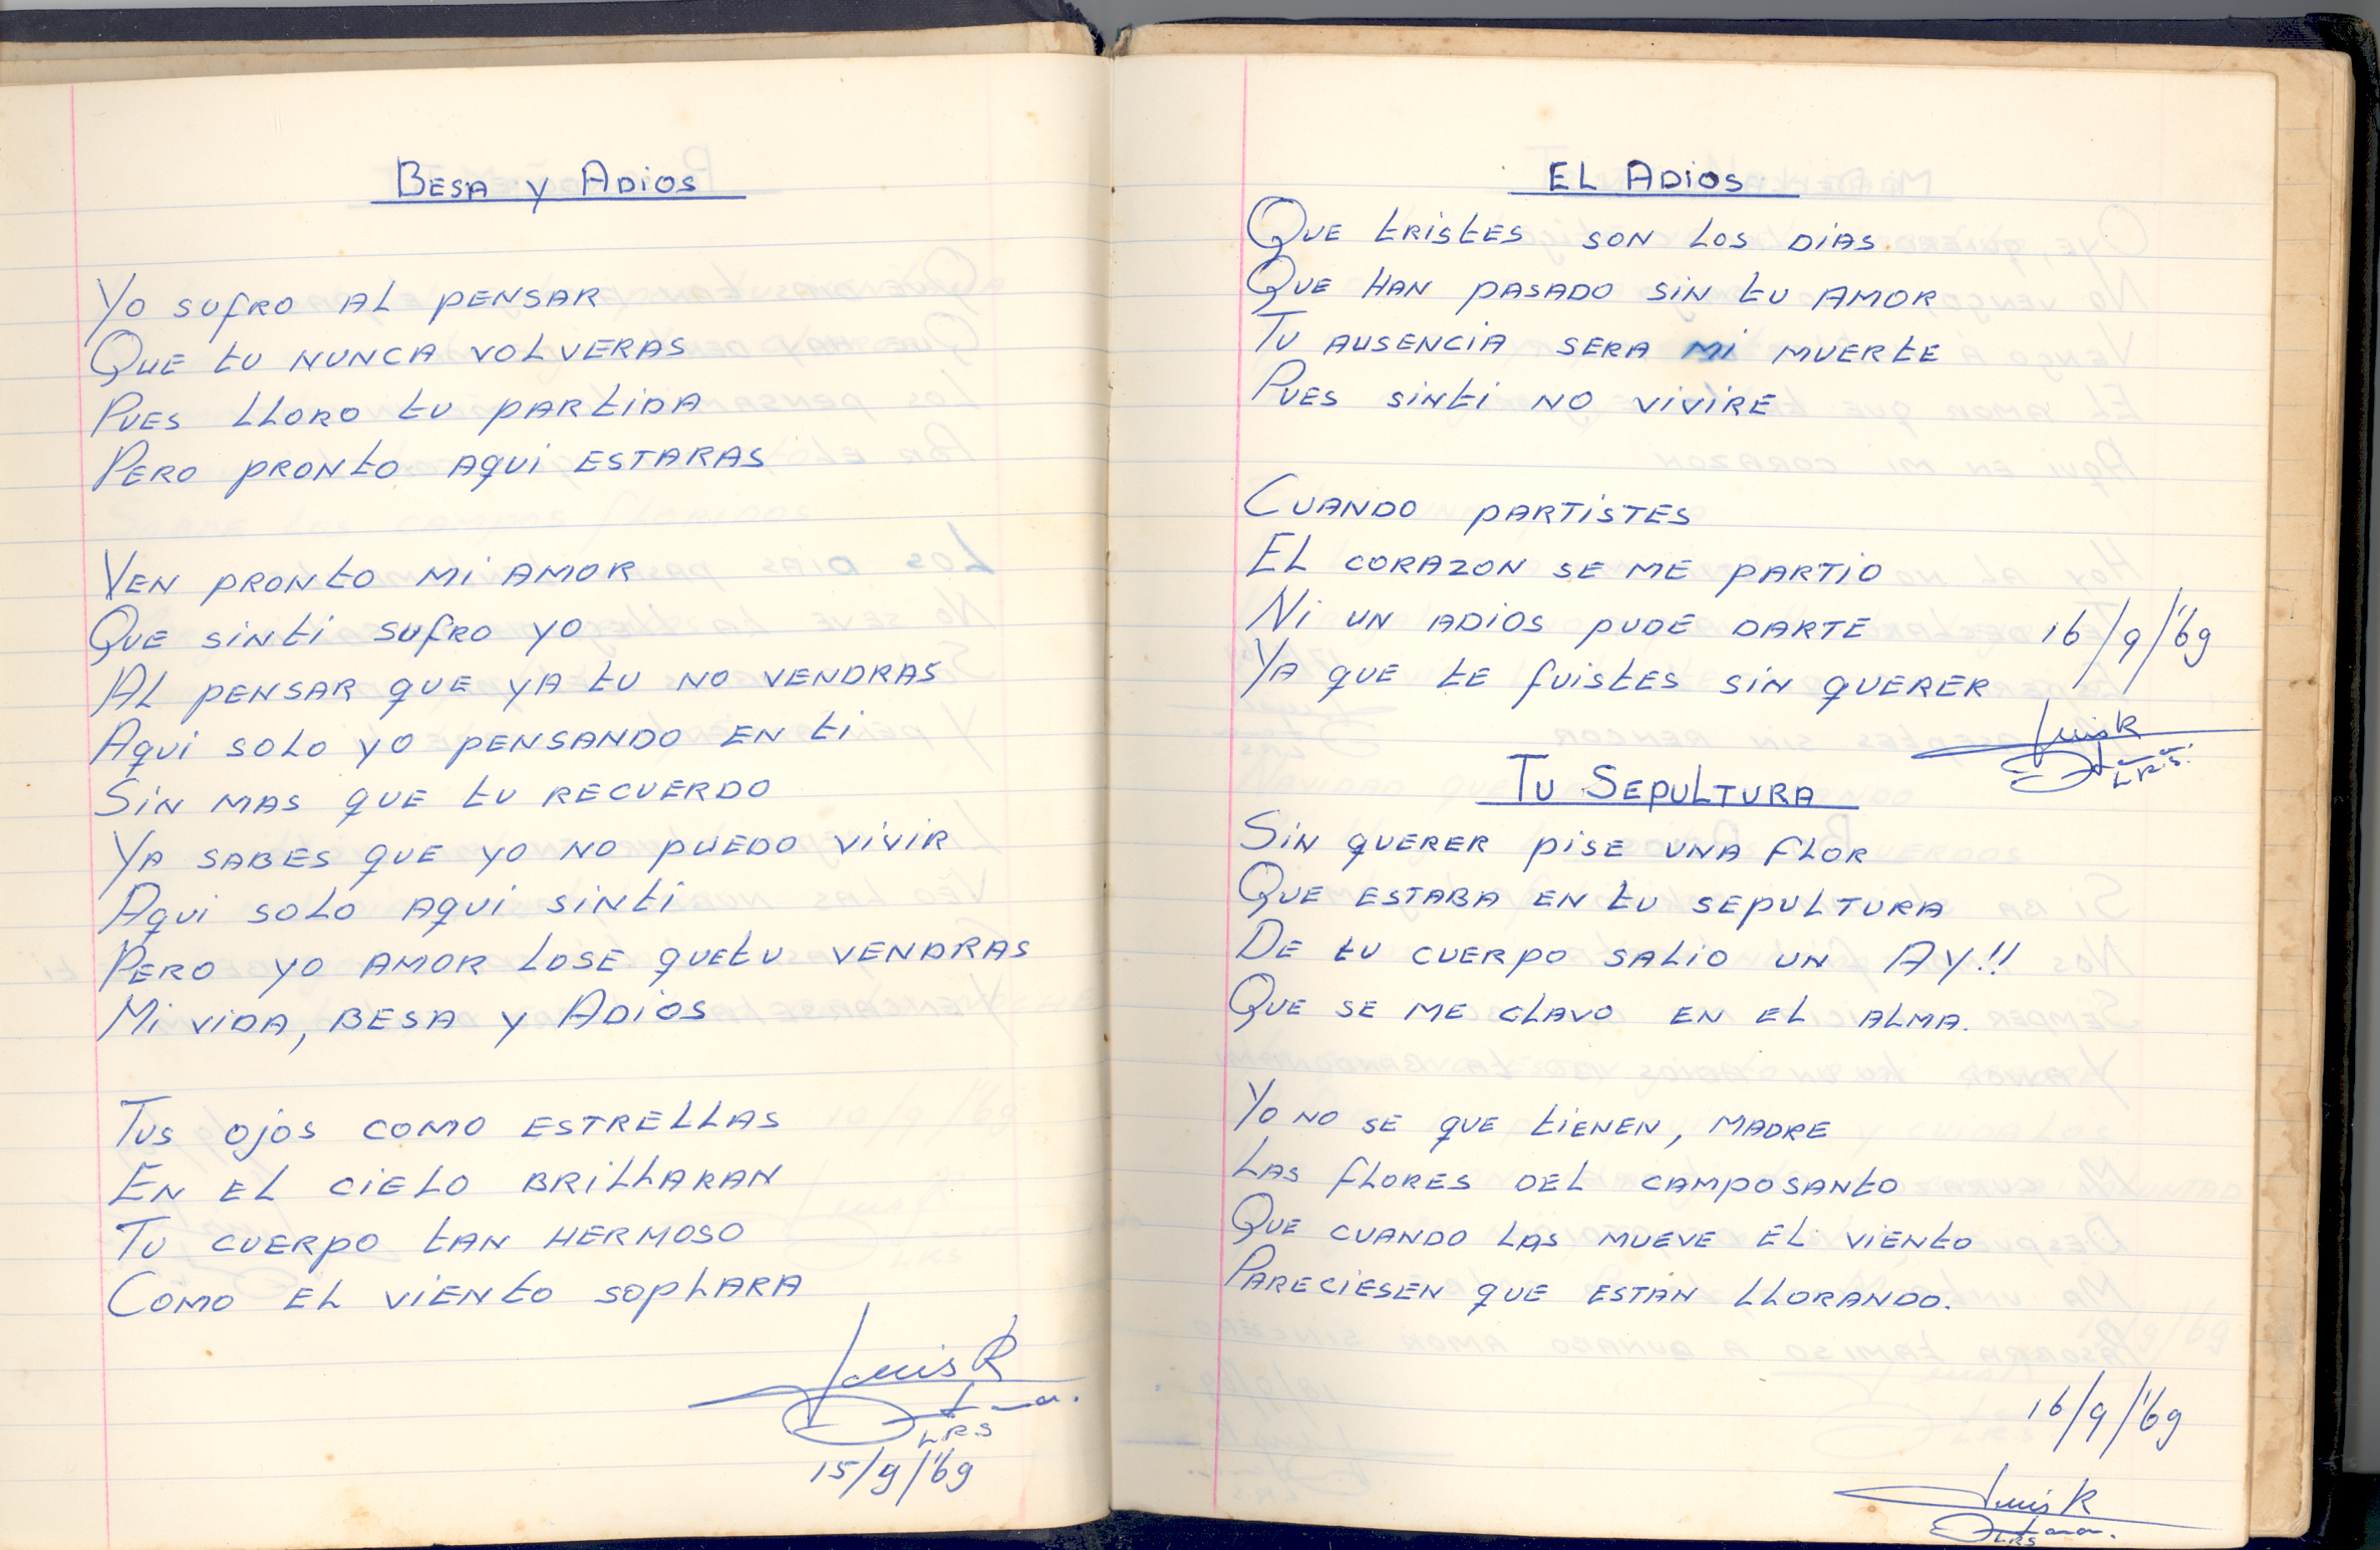 Besa y Adios
Yo sufro al pensar
Que tu nunca volveras
Pues lloro tu partida
Pero pronto aqui estaras
Ven pronto mi amor
Que sinti sufro yo
Al pensar que ya tu no vendras
Aqui solo yo pensando en ti
Sin mas que tu recuerdo
Ya sabes que yo no puedo vivir
Aqui solo aqui sinti
Pero yo amor lose quetu vendras
Mi vida, besa y Adios
Tus ojos como estrellas
En el cielo brillaran
Tu cuerpo tan hermoso
Como el viento soplara
Luis R
L.R.S
15/9/'69
El Adios
Que tristes son los dias
Que han pasado sin tu amor
Tu ausencia sera mi muerte
Pues sinti no vivire
Cuando partistes
El corazon se me partio
Ni un adios pude darte
Ya que te fuistes sin querer
16/9/'69
Luis R
L.R.S.
Tu Sepultura
Sin querer pise una flor
Que estaba en tu sepultura
De tu cuerpo salio un Ay!!
Que se me clavo en el alma.
Yo no se que tienen, madre
Las flores del camposanto
Que cuando las mueve el viento
Pareciesen que estan llorando.
16/9/'69
Luis R
LRS